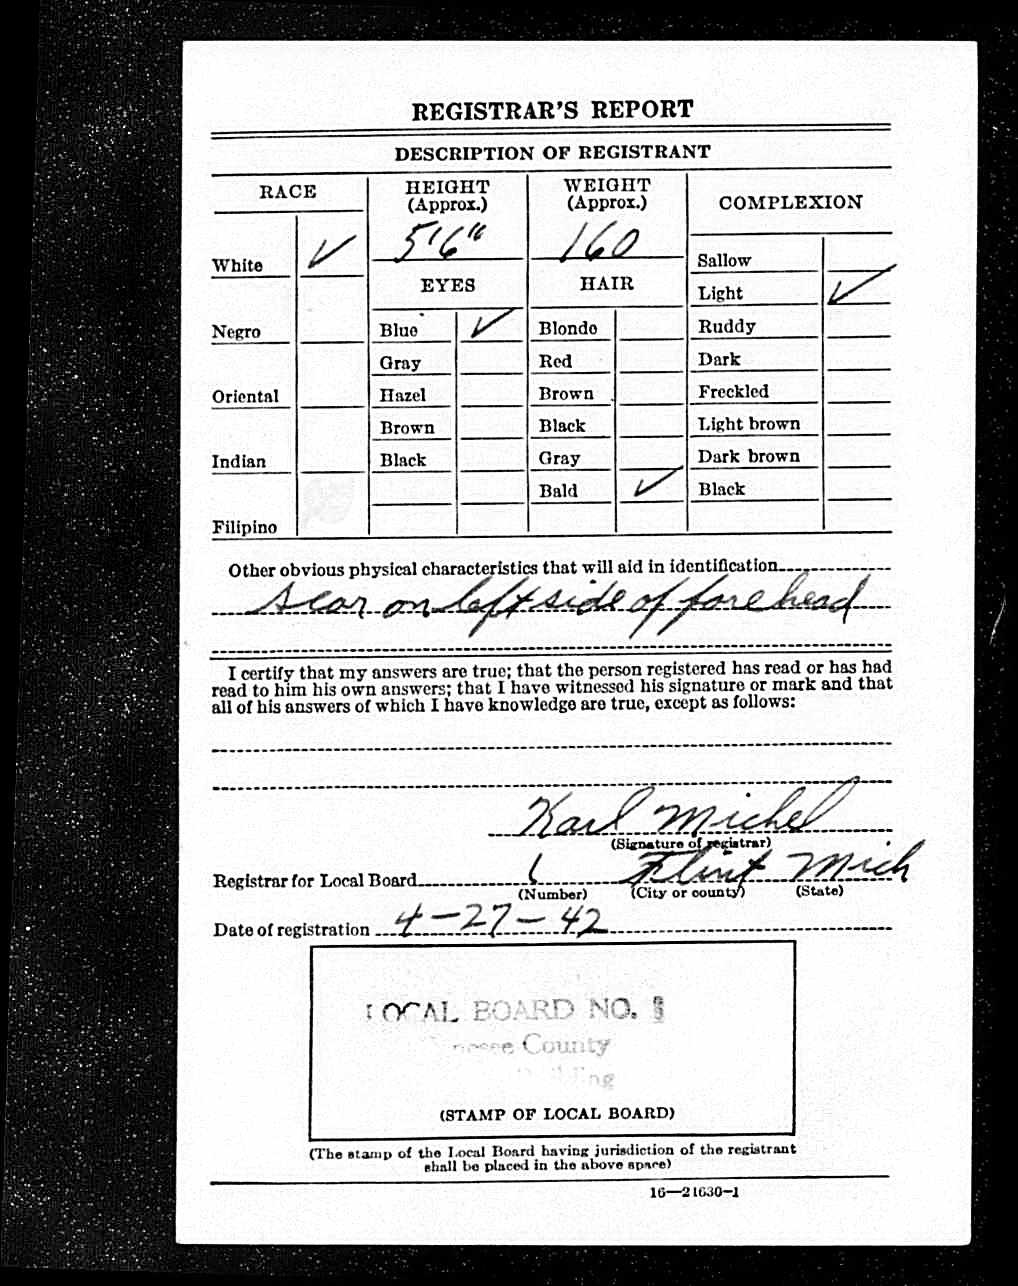 REGISTRAR'S REPORT
DESCRIPTION OF REGISTRANT
RACE
HEIGHT
(Approx.)
5'6"
WEIGHT
(Approx.)
160
COMPLEXION
White ✓
Negro
Oriental
Indian
Filipino
EYES
Blue ✓
Gray
Hazel
Brown
Black
HAIR
Blonde
Red
Brown
Black
Gray
Bald ✓
Sallow
Light ✓
Ruddy
Dark
Freckled
Light brown
Dark brown
Black
Other obvious physical characteristics that will aid in identification
scar on left side of forehead
I certify that my answers are true; that the person registered has read or has had
read to him his own answers; that I have witnessed his signature or mark and that
all of his answers of which I have knowledge are true, except as follows:
Karl Michel
(Signature of registrar)
Registrar for Local Board 1 Flint Mich
(Number) (City or county) (State)
Date of registration 4-27-42
LOCAL BOARD NO.
County
(STAMP OF LOCAL BOARD)
(The stamp of the Local Board having jurisdiction of the registrant
shall be placed in the above space)
16—21630-1